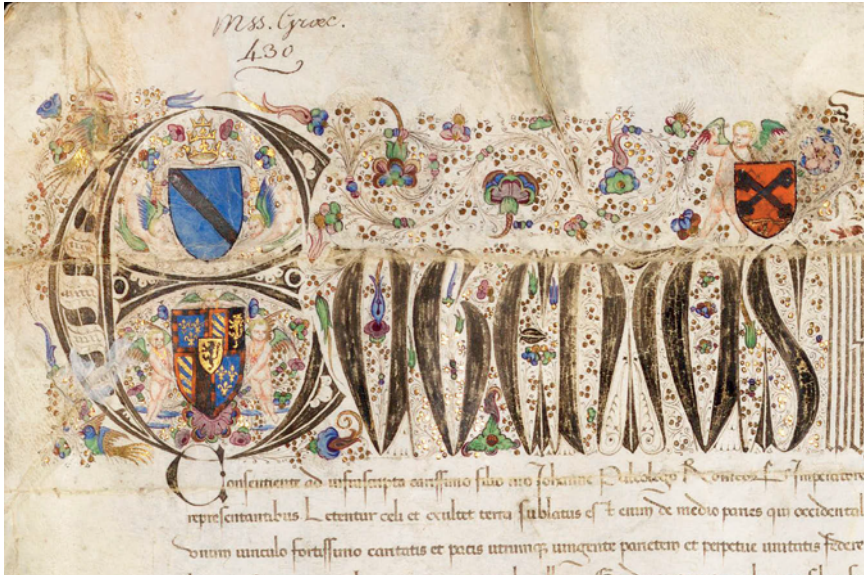 Mss. Graec.
430
EUGENIUS
Consentiente ad infrascripta carissimo filio nro Johanne Paleologo Romeor
representantibus Letentur celi et exultet terra sublatus est enim de medio paries qui occidental
onum vinculo fortissimo caritatis et pacis utrunq iungente parietem et perpetue unitatis federe